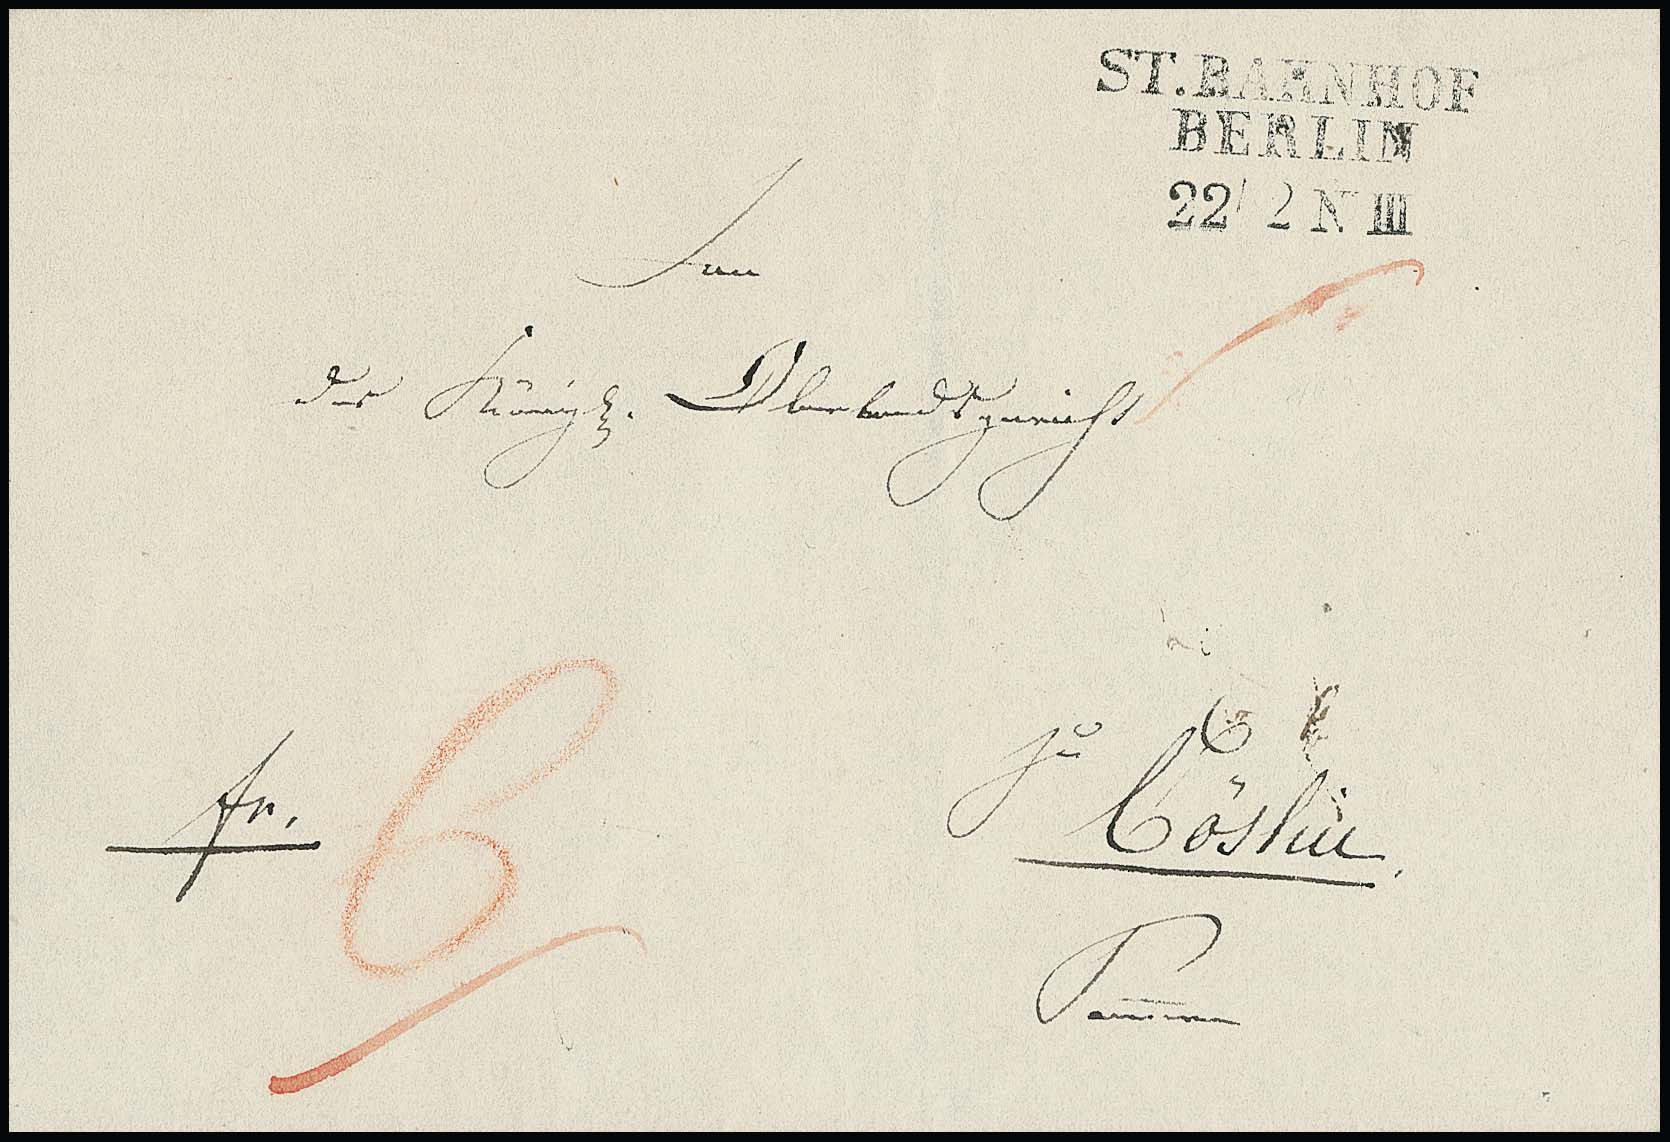 ST. BAHNHOF
BERLIN
22/2 N III
An
das Königl. Oberlandsgericht
zu
Cöslin
fr.
6